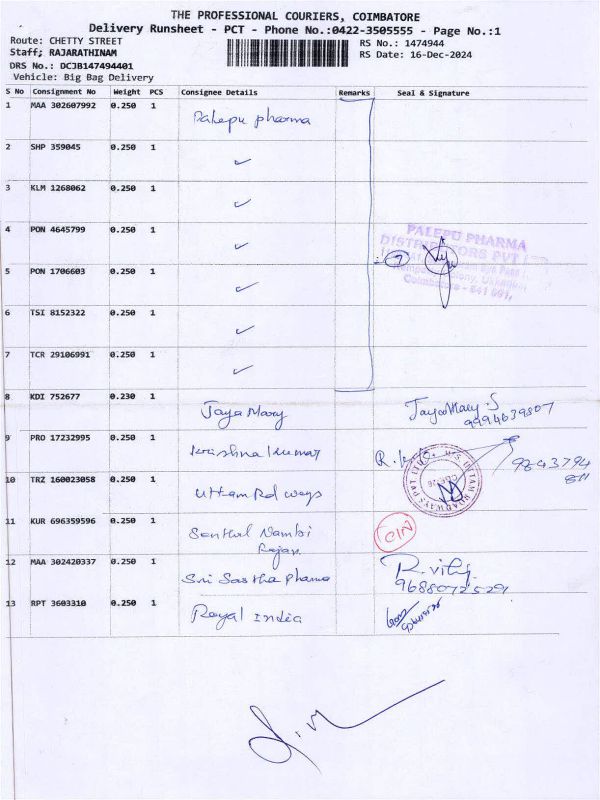 THE PROFESSIONAL COURIERS, COIMBATORE
Delivery Runsheet - PCT - Phone No.:0422-3505555 - Page No.:1
Route: CHETTY STREET RS No.: 1474944
Staff: RAJARATHINAM RS Date: 16-Dec-2024
DRS No.: DCJB147494401
Vehicle: Big Bag Delivery
S No Consignment No Weight PCS Consignee Details Remarks Seal & Signature
1 MAA 302607992 0.250 1 Palepu pharma
2 SHP 359045 0.250 1 ✓
3 KLM 1268062 0.250 1 ✓
4 PON 4645799 0.250 1 ✓
PALEPU PHARMA
DISTRIBUTORS PVT LTD
5 PON 1706603 0.250 1 ✓ 7
Coimbatore - 641 001.
6 TSI 8152322 0.250 1 ✓
7 TCR 29106991 0.250 1 ✓
8 KDI 752677 0.230 1 Jaya Mary JayaMary.S
9994639807
9 PRO 17232995 0.250 1 Krishna Kumar 9843794
811
10 TRZ 160023058 0.250 1 Uttam Rd ways
11 KUR 696359596 0.250 1 Senthil Nambi
Rajan. CIN
12 MAA 302420337 0.250 1 Sri Sastha Pharma R.
9688072529
13 RPT 3603310 0.250 1 Royal India